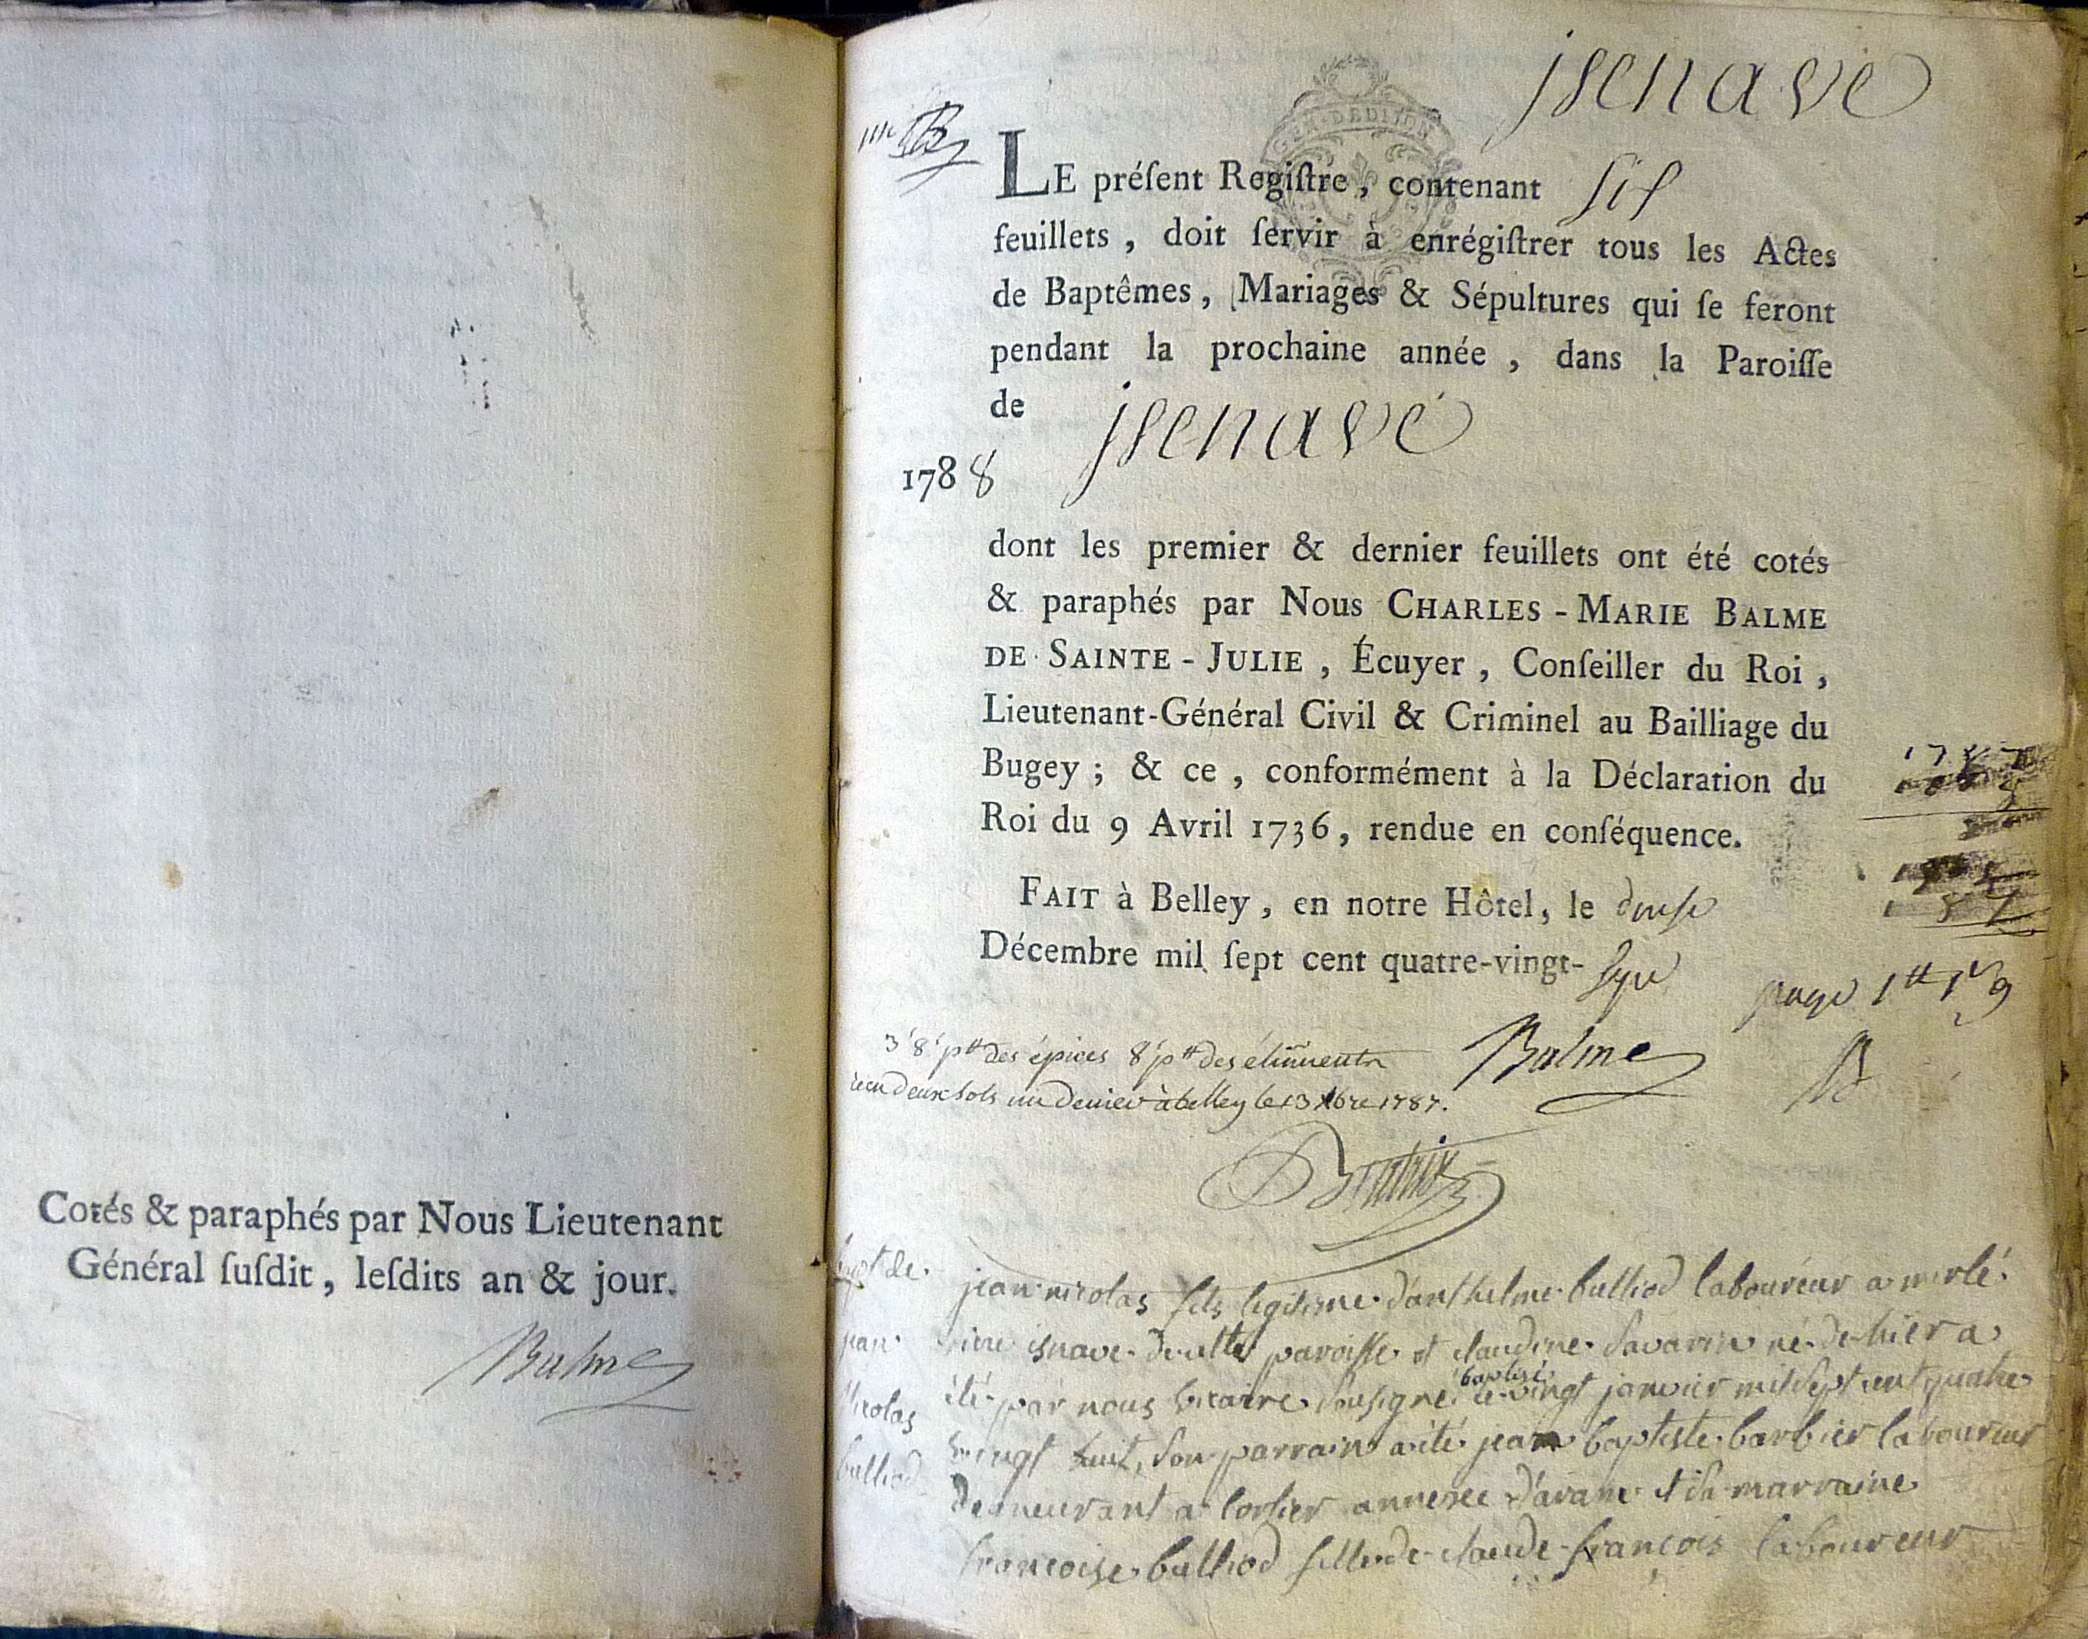 Cotés & paraphés par Nous Lieutenant
Général ſuſdit, leſdits an & jour.
Balme
jsenave
LE préſent Regiſtre, contenant six
feuillets, doit ſervir à enrégiſtrer tous les Actes
de Baptêmes, Mariages & Sépultures qui ſe feront
pendant la prochaine année, dans la Paroiſſe
de jsenave
1788
dont les premier & dernier feuillets ont été cotés
& paraphés par Nous CHARLES-MARIE BALME
DE SAINTE-JULIE, Écuyer, Conſeiller du Roi,
Lieutenant-Général Civil & Criminel au Bailliage du
Bugey; & ce, conformément à la Déclaration du
Roi du 9 Avril 1736, rendue en conſéquence.
FAIT à Belley, en notre Hôtel, le douse
Décembre mil ſept cent quatre-vingt-sept
Balme
B
des épices
recu deux sols un denier à belley le 13 Xbre 1787.
bapt de
jean
nicolas
balliod
jean nicolas fils legitime d'anthelme balliod laboureur a
isnave de cette paroisse et claudine Savarin né de hier a
été par nous vicaire soussigné baptisé le vingt janvier mil sept cent quatre
vingt huit, son parrain a été jean baptiste barbier laboureur
demeurant a corlier annexe d'aranc et sa marraine
francoise balliod fille de claude françois laboureur